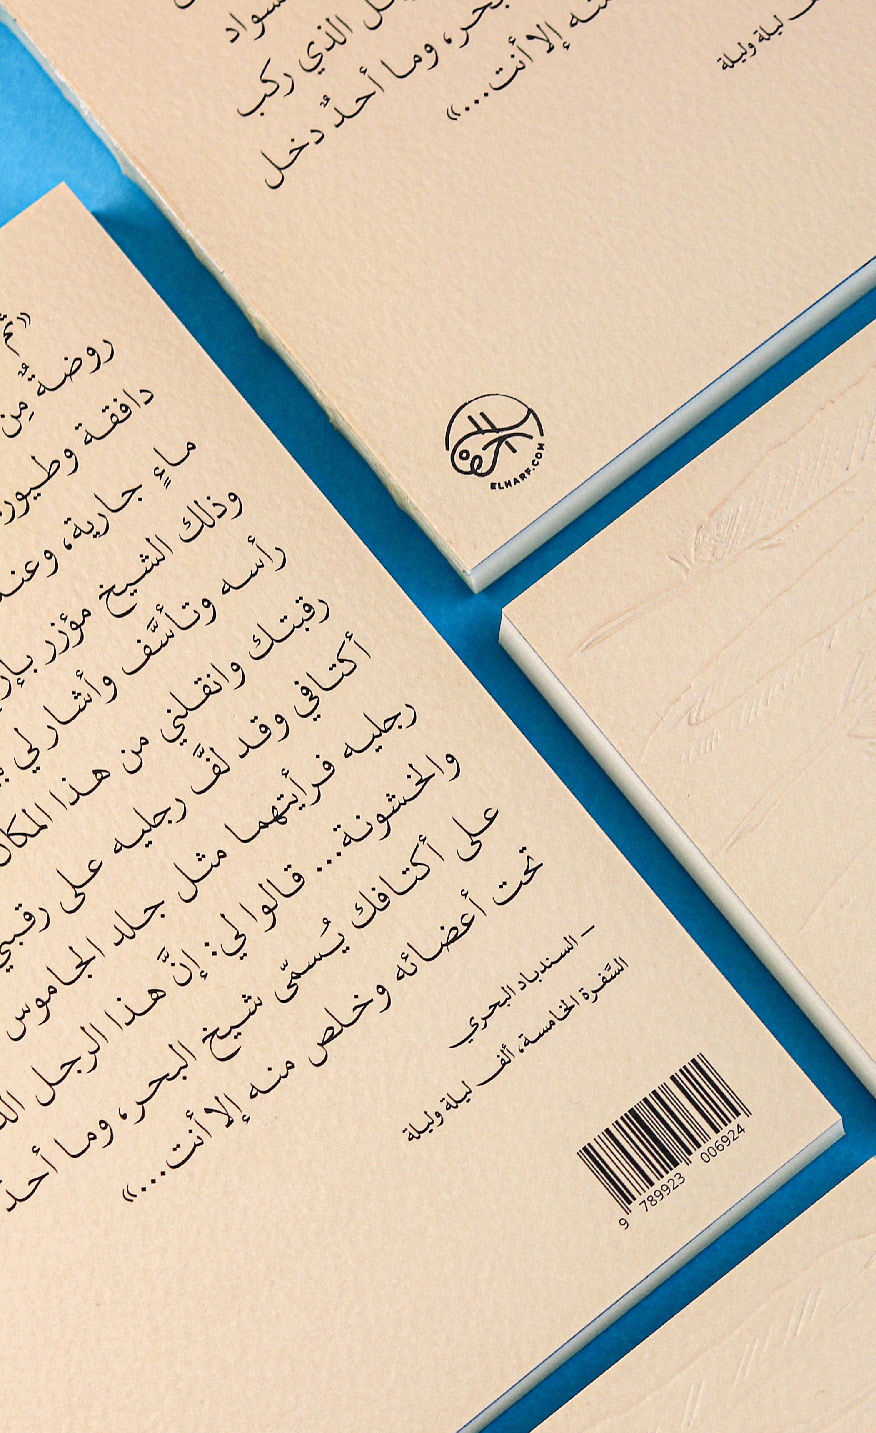 سواد
الذي ركب
بحر، وما أحدٌ دخل
منه إلا أنت...»
ليلة وليلة
ELHARF.COM
«ثم
روضةٌ مِن
دافقة وطيور
ماءٍ جارية، وعند
وذلك الشيخ مؤزر
رأسه وتأسَّف وأشار لي
رقبتك وانقلني من هذا المكان
أكتافي وقد لفَّ رجليه على رقبتي
رجليه فرأيتهما مثل جلد الجاموس
والخشونة... قالوا لي: إنَّ هذا الرجل
على أكتافك يُسمّى شيخ البحر، وما أحدٌ
تحت أعضائه وخلص منه إلا أنت...»
– السندباد البحري
السَّفرة الخامسة، ألف ليلة وليلة
9 789923 006924